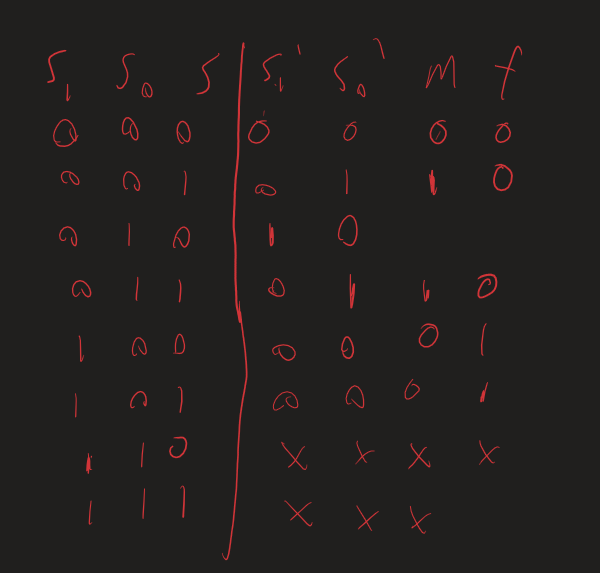 S₁ S₀ S | S₁' S₀' M f
0 0 0 | 0 0 0 0
0 0 1 | 0 1 1 0
0 1 0 | 1 0
0 1 1 | 0 1 1 0
1 0 0 | 0 0 0 1
1 0 1 | 0 0 0 1
1 1 0 | X X X X
1 1 1 | X X X